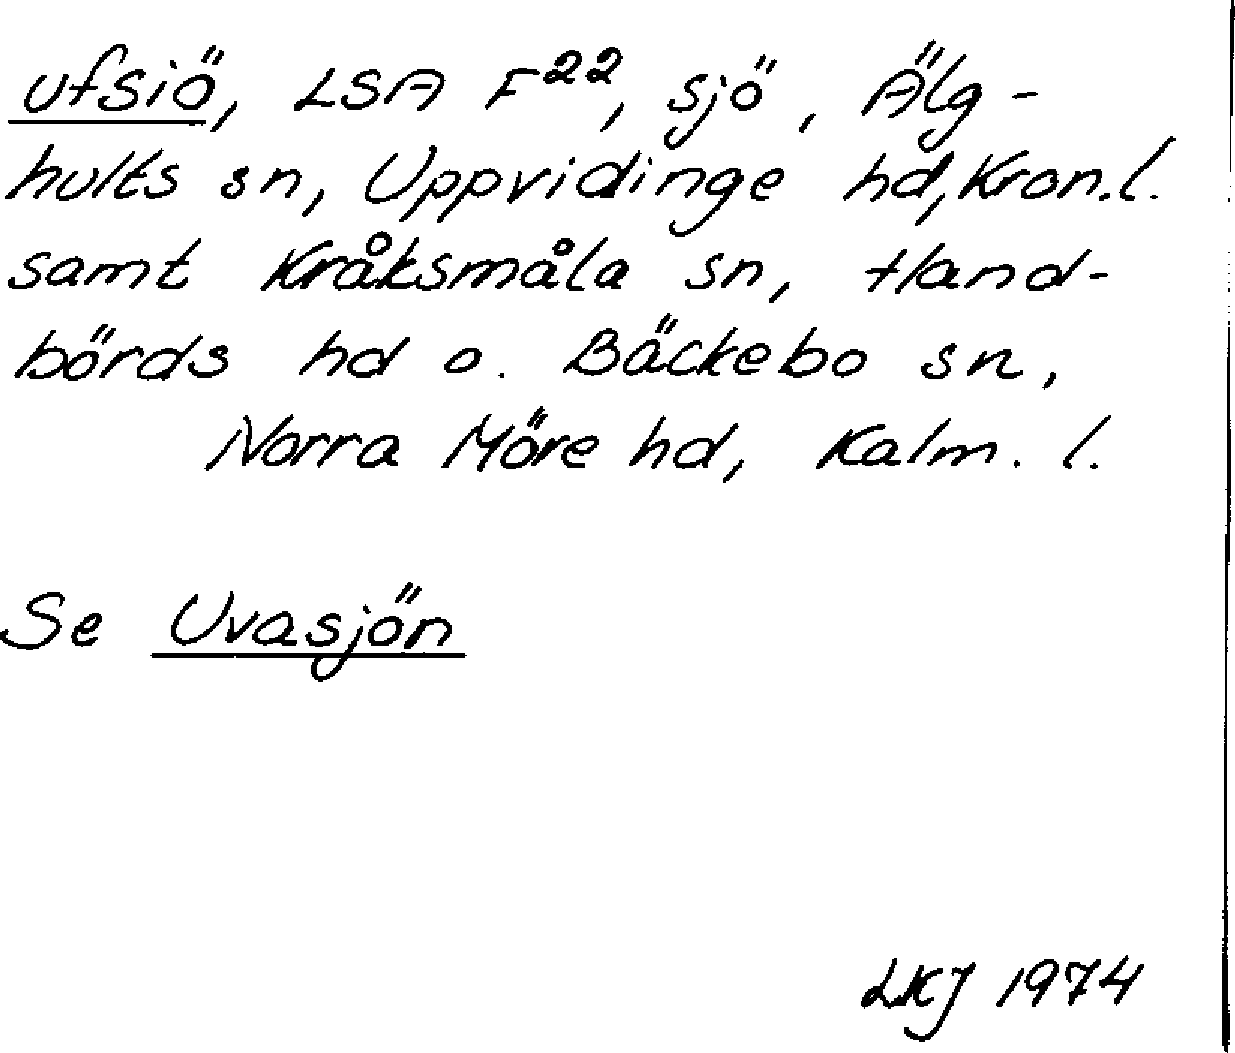 ufsiö, LSA F²², sjö, Älg-
hults sn, Uppvidinge hd, Kron.l.
samt Kråksmåla sn, Hand-
börds hd o. Bäckebo sn,
Norra Möre hd, Kalm. l.
Se Uvasjön
LKJ 1974